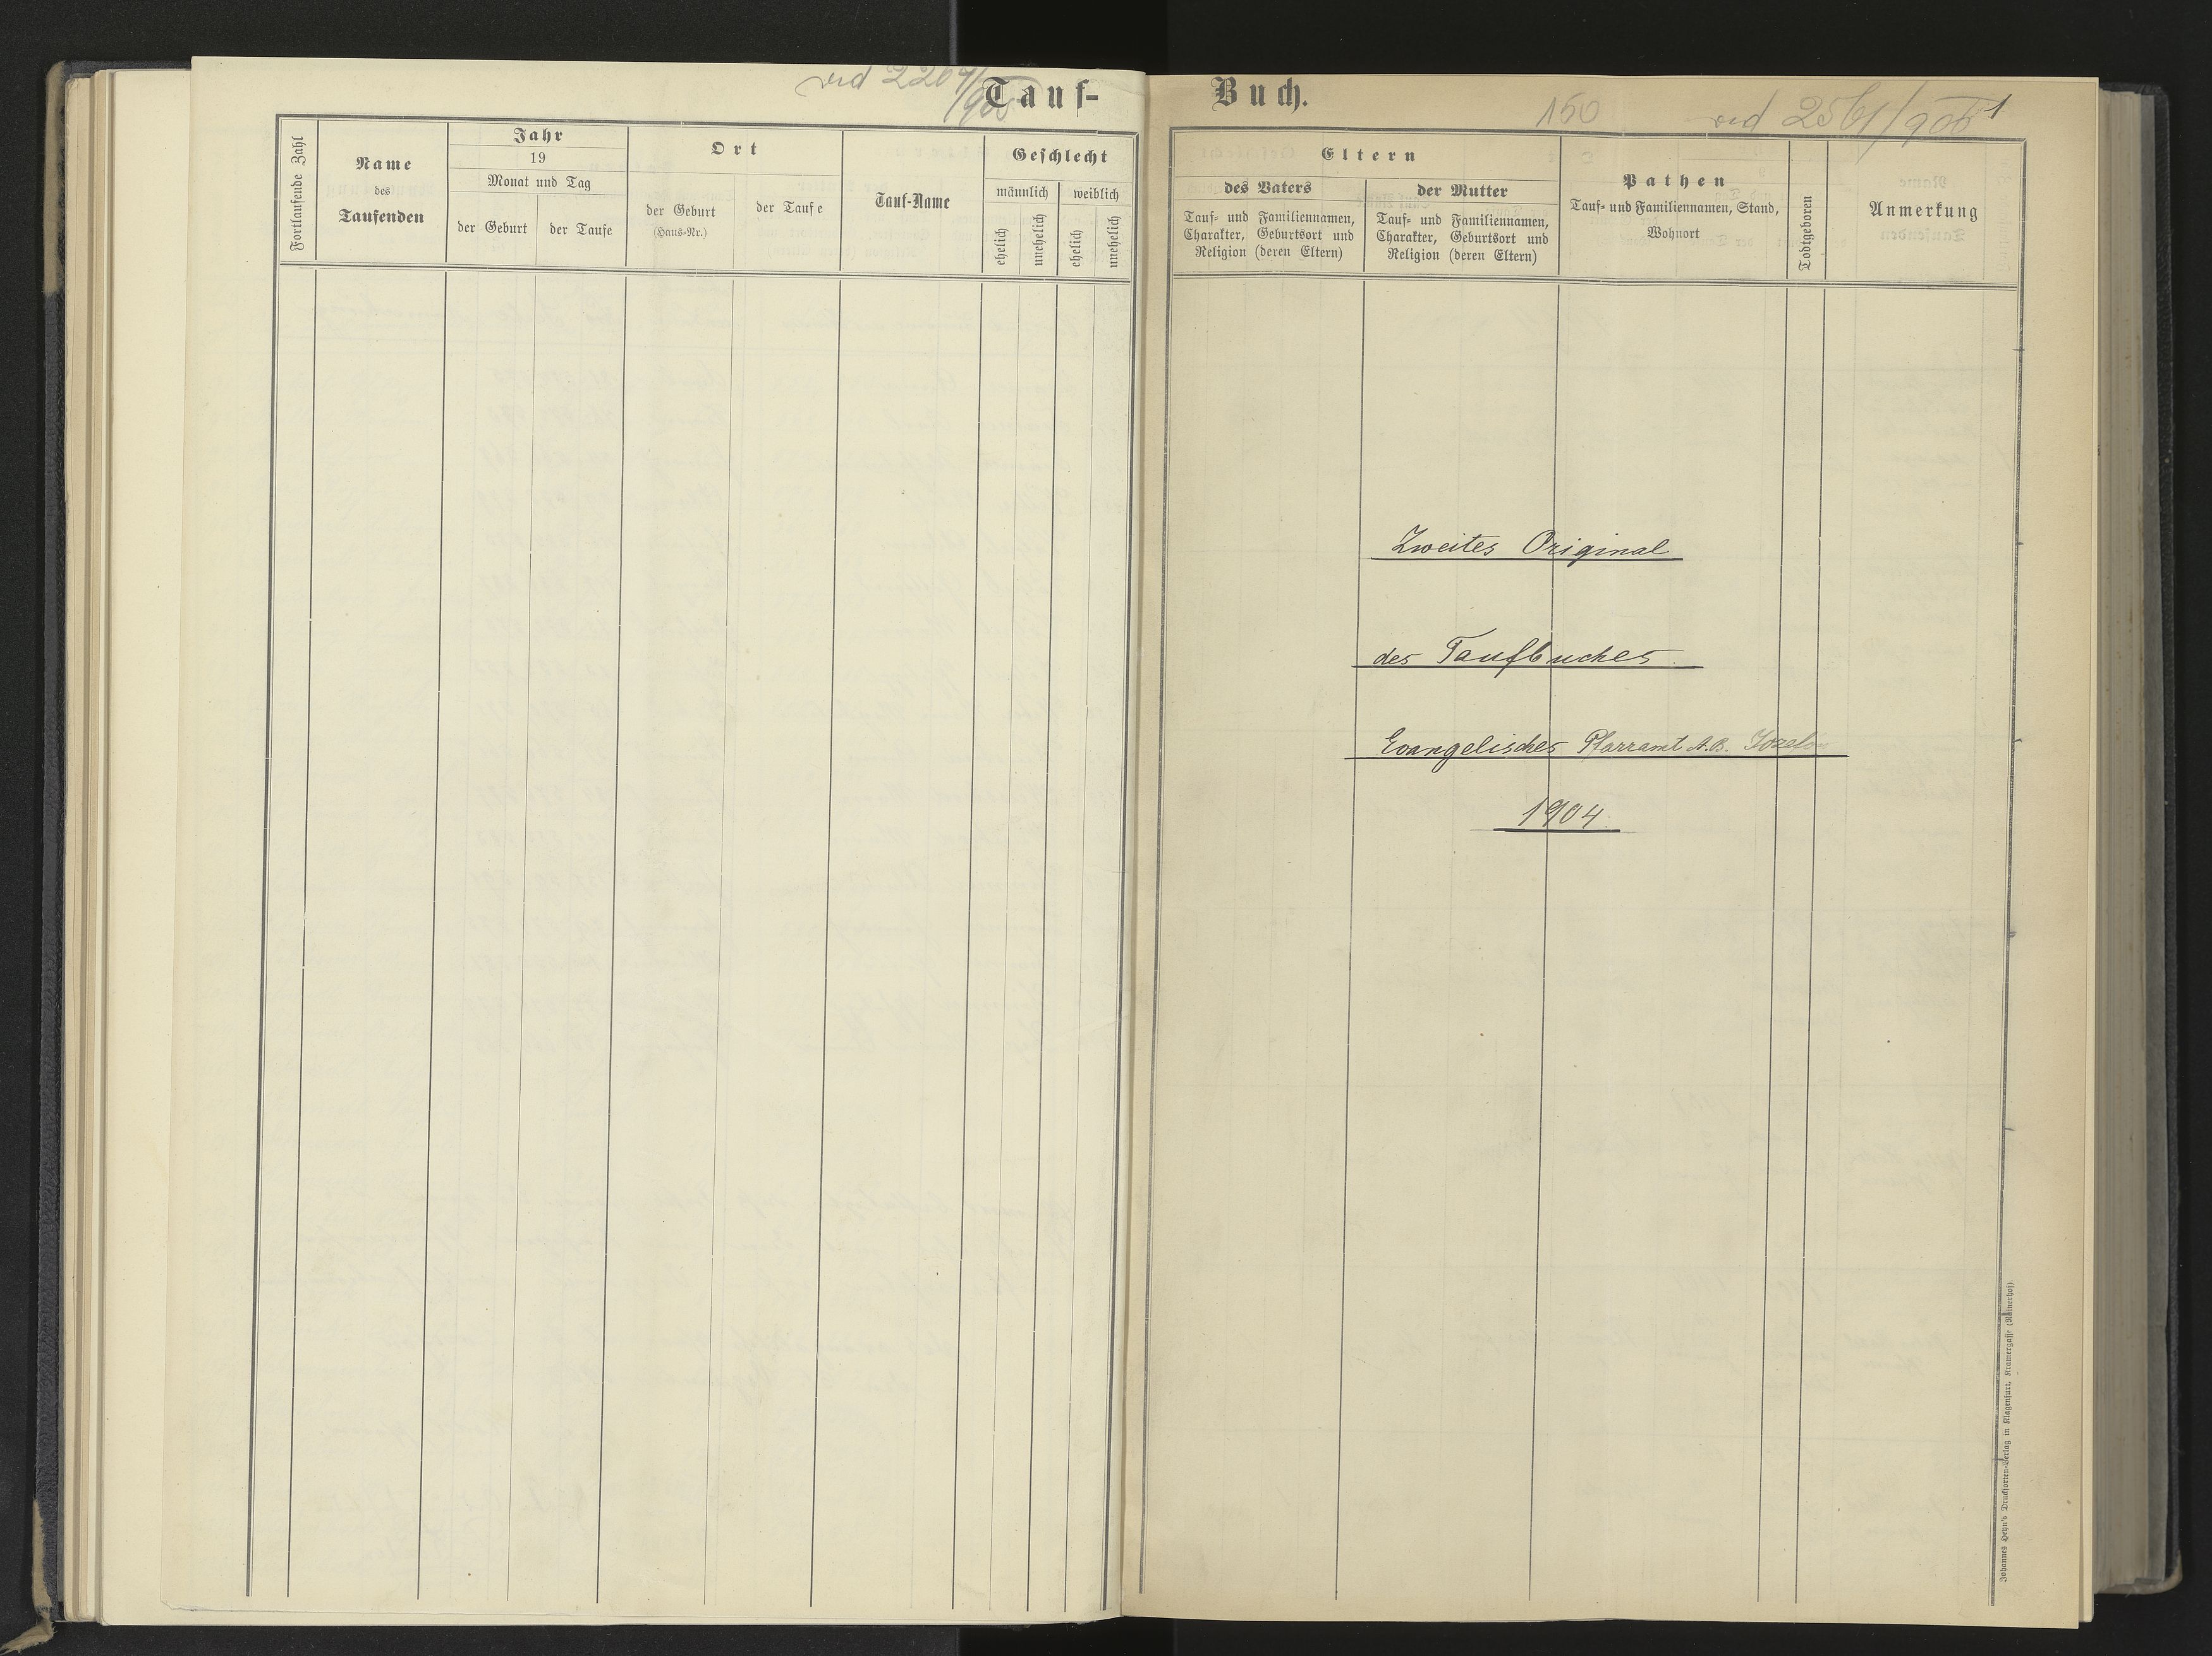 Tauf-
Fortlaufende Zahl
Name
des
Taufenden
Jahr
19
Monat und Tag
der Geburt
der Taufe
Ort
der Geburt
(Haus-Nr.)
der Taufe
Tauf-Name
Geschlecht
männlich
weiblich
ehelich
unehelich
ehelich
unehelich
Buch.
150
1
Eltern
des Vaters
Tauf- und Familiennamen,
Charakter, Geburtsort und
Religion (deren Eltern)
der Mutter
Tauf- und Familiennamen,
Charakter, Geburtsort und
Religion (deren Eltern)
Pathen
Tauf- und Familiennamen, Stand,
Wohnort
Todtgeboren
Anmerkung
Zweites Original
des Taufbuches
Evangelisches Pfarramt A.B.
1904.
Johannes Heyn's Drucksorten-Verlag in Klagenfurt, Kramergasse (Rainerhof).